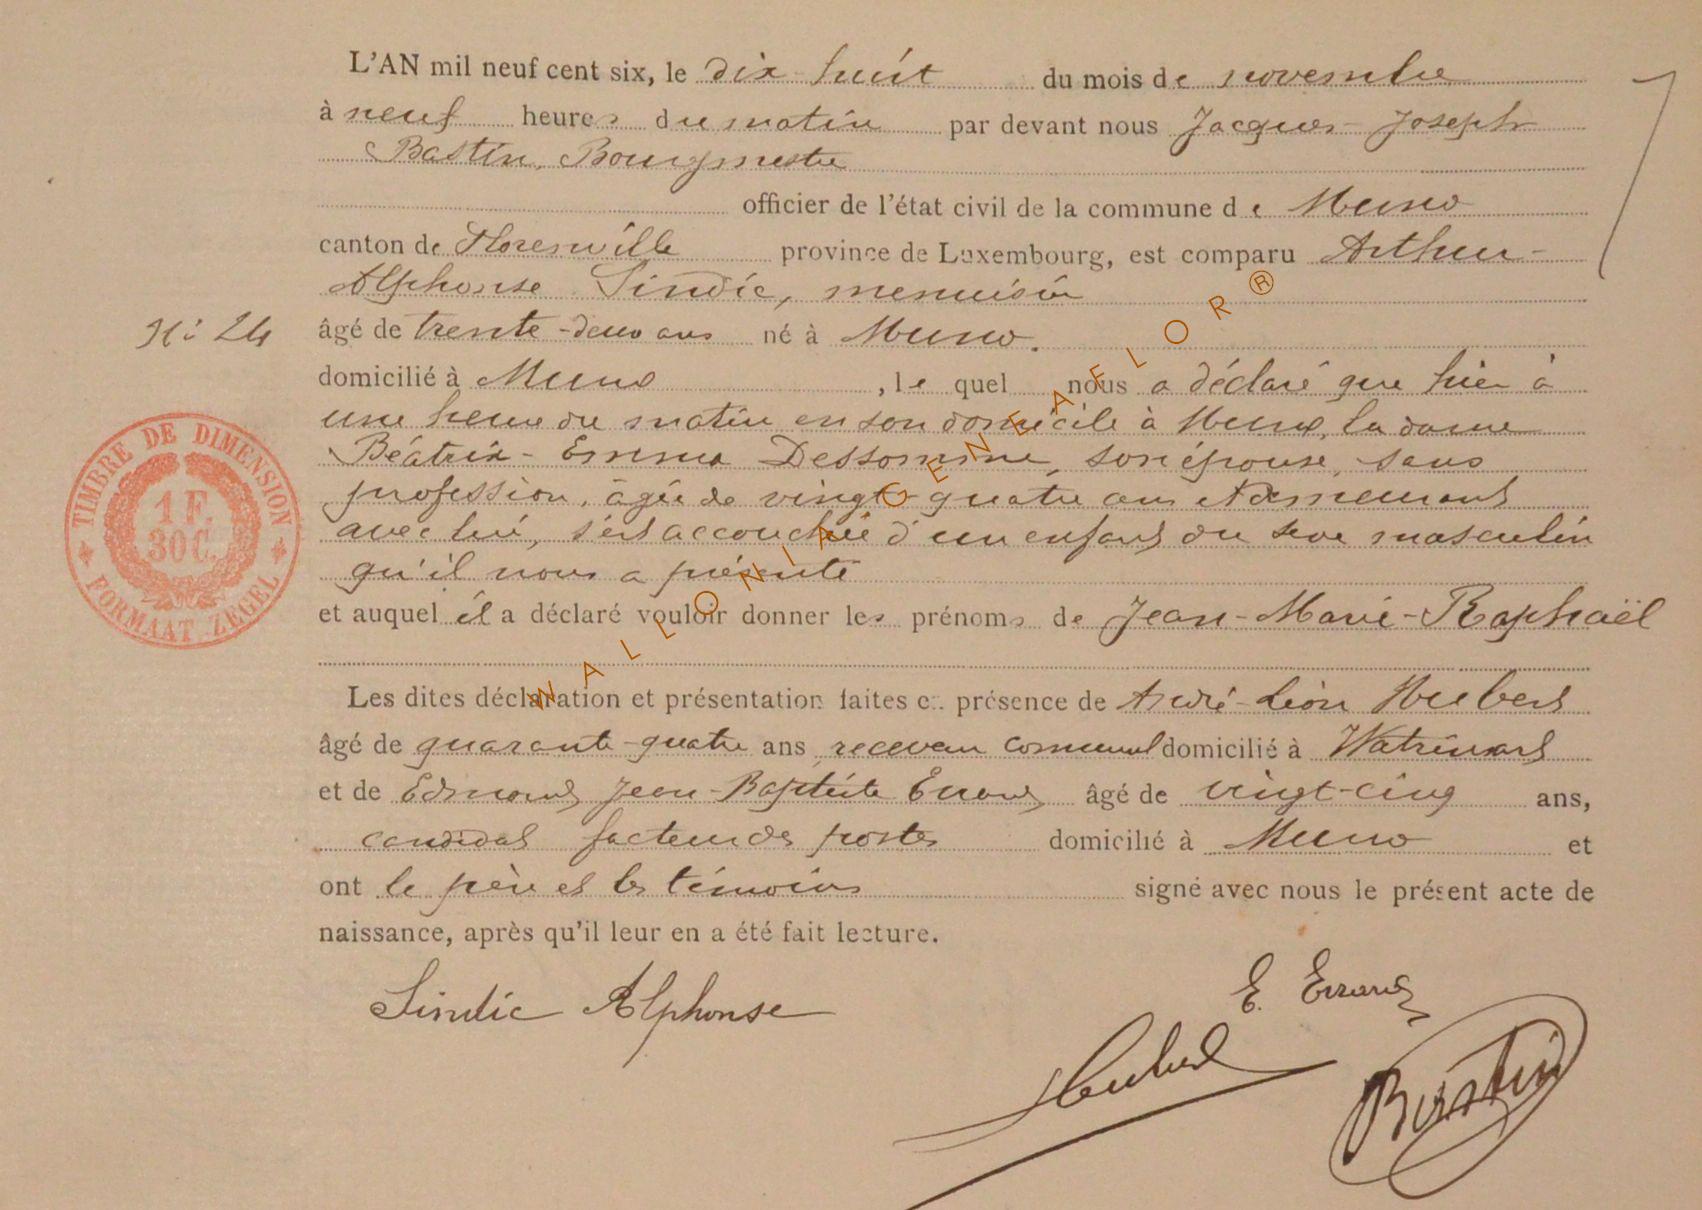 L'AN mil neuf cent six, le dix-huit du mois de novembre
à neuf heures du matin par devant nous Jacques-Joseph
Bastin, Bourgmestre
officier de l'état civil de la commune de Muno
canton de Florenville province de Luxembourg, est comparu Arthur-
Alphonse Sindic, menuisier
N° 24
âgé de trente-deux ans né à Muno.
domicilié à Muno, lequel nous a déclaré que hier à
une heure du matin en son domicile à Muno, la dame
Béatrix-Emma Dessomme, son épouse, sans
profession, âgée de vingt-quatre ans et demeurant
avec lui, s'est accouchée d'un enfant du sexe masculin
qu'il nous a présenté
et auquel il a déclaré vouloir donner les prénoms de Jean-Marie-Raphaël
Les dites déclaration et présentation faites en présence de André-Léon Hubert
âgé de quarante-quatre ans, receveur communal domicilié à Watrinsart
et de Edmond Jean-Baptiste Errard âgé de vingt-cinq ans,
candidat facteur des postes domicilié à Muno et
ont le père et les témoins signé avec nous le présent acte de
naissance, après qu'il leur en a été fait lecture.
Sindic Alphonse
E. Errard
Hubert
Bastin
TIMBRE DE DIMENSION
1 F.
30 C.
FORMAAT ZEGEL
WALLONIA GENEAFLOR ®